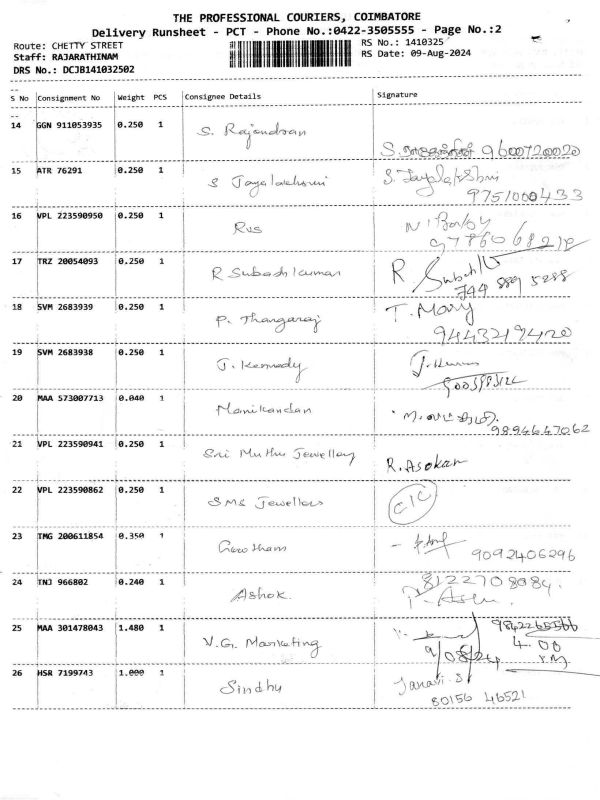 THE PROFESSIONAL COURIERS, COIMBATORE
Delivery Runsheet - PCT - Phone No.:0422-3505555 - Page No.:2
Route: CHETTY STREET RS No.: 1410325
Staff: RAJARATHINAM RS Date: 09-Aug-2024
DRS No.: DCJB141032502
S No Consignment No Weight PCS Consignee Details Signature
14 GGN 911053935 0.250 1 S. Rajendran
9600720020
15 ATR 76291 0.250 1 S Jayalakshmi S. Jayalakshmi
9751000433
16 VPL 223590950 0.250 1 Rvs
17 TRZ 20054093 0.250 1 R Subash kumar R
18 SVM 2683939 0.250 1 P. Thangaraj T. Mary
9443219420
19 SVM 2683938 0.250 1 J. Kennedy
20 MAA 573007713 0.040 1 Manikandan
9894647062
21 VPL 223590941 0.250 1 Sri Muthu Jewellary R. Asokan
22 VPL 223590862 0.250 1 SMS Jewellers
23 TMG 200611854 0.350 1 Gowtham
9092406296
24 TNJ 966802 0.240 1 Ashok. 8122708084.
25 MAA 301478043 1.480 1 V.G. Marketing 9842265566
9/08/24 4.00 P.M.
26 HSR 7199743 1.000 1 Sindhu
80156 46521